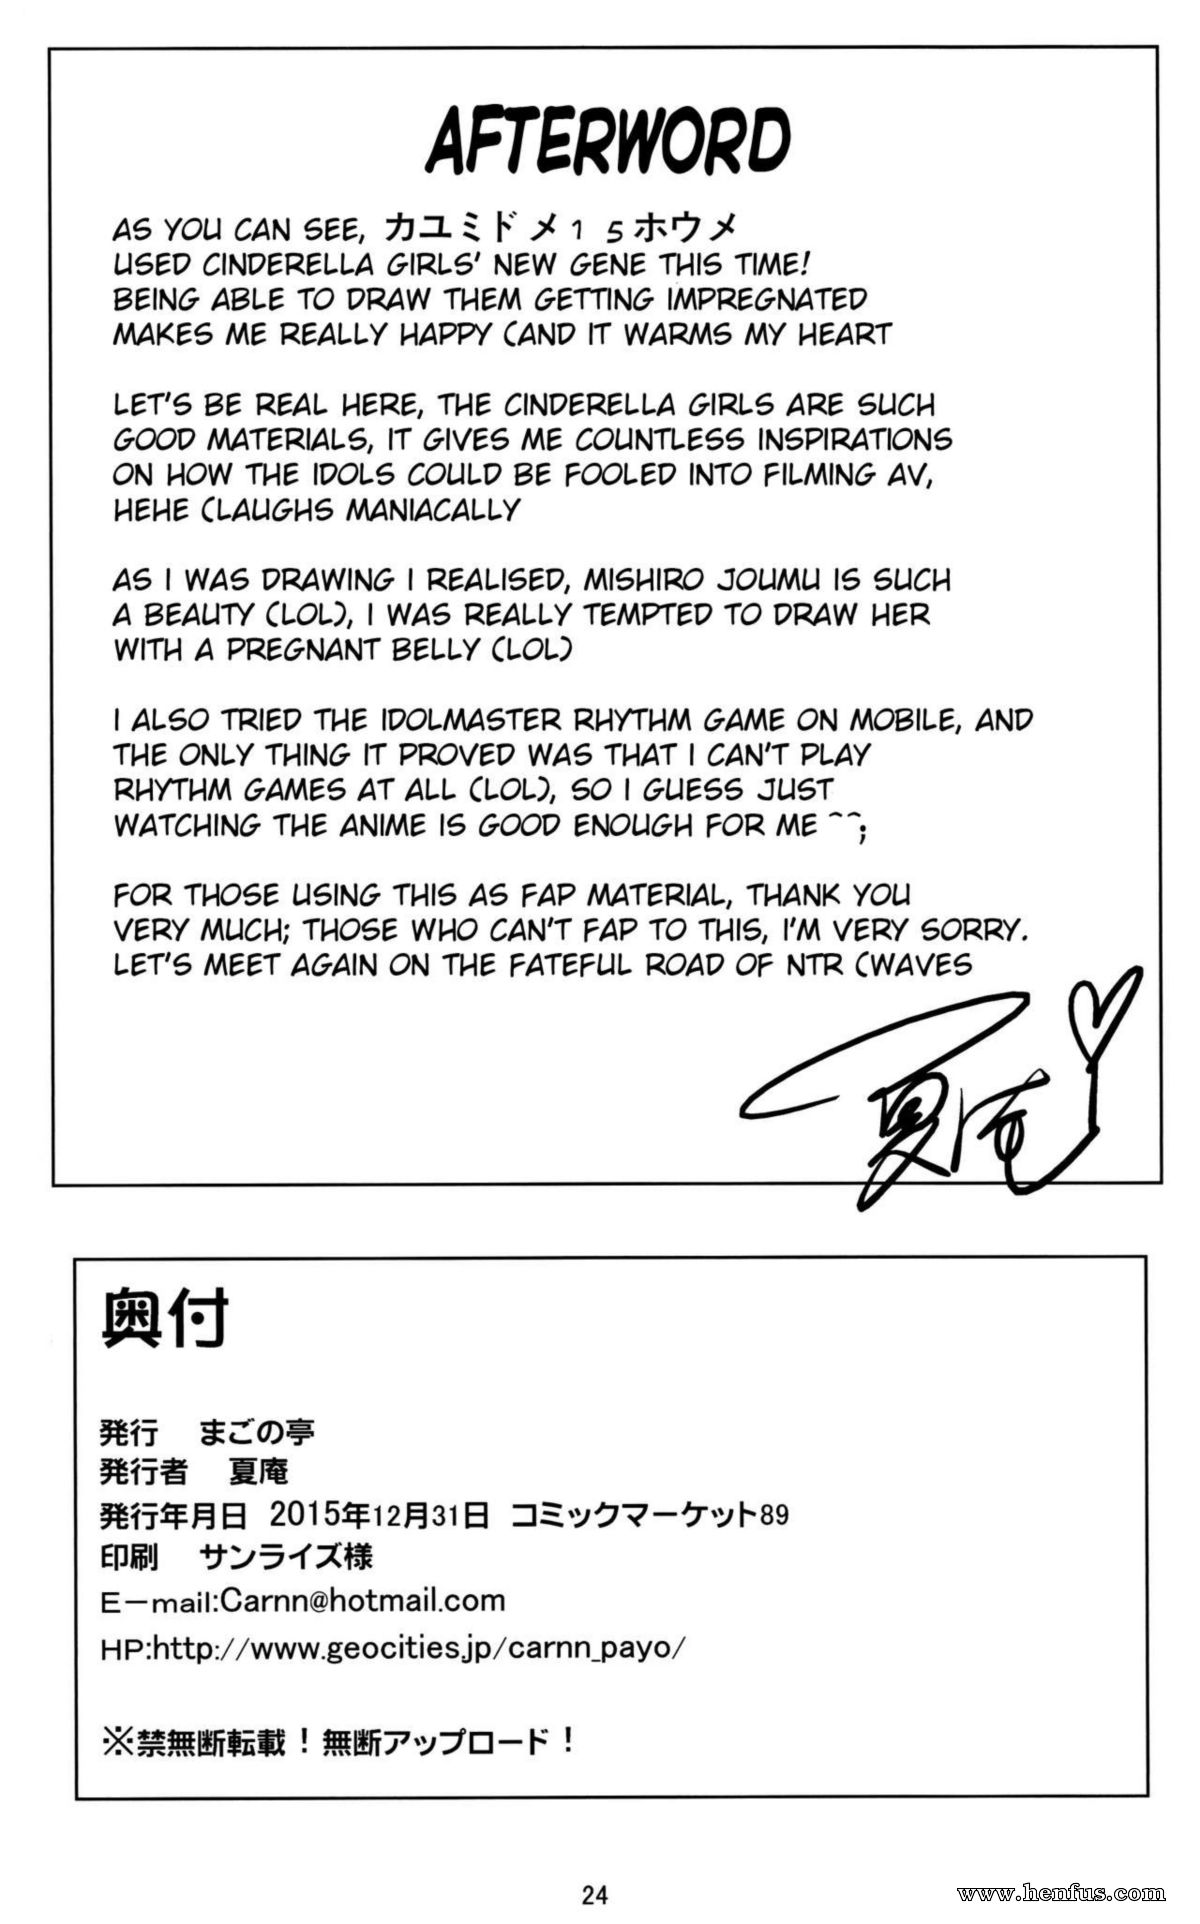 AFTERWORD
AS YOU CAN SEE, カユミドメ15ホウメ
USED CINDERELLA GIRLS' NEW GENE THIS TIME!
BEING ABLE TO DRAW THEM GETTING IMPREGNATED
MAKES ME REALLY HAPPY (AND IT WARMS MY HEART
LET'S BE REAL HERE, THE CINDERELLA GIRLS ARE SUCH
GOOD MATERIALS, IT GIVES ME COUNTLESS INSPIRATIONS
ON HOW THE IDOLS COULD BE FOOLED INTO FILMING AV,
HEHE (LAUGHS MANIACALLY
AS I WAS DRAWING I REALISED, MISHIRO JOUMU IS SUCH
A BEAUTY (LOL), I WAS REALLY TEMPTED TO DRAW HER
WITH A PREGNANT BELLY (LOL)
I ALSO TRIED THE IDOLMASTER RHYTHM GAME ON MOBILE, AND
THE ONLY THING IT PROVED WAS THAT I CAN'T PLAY
RHYTHM GAMES AT ALL (LOL), SO I GUESS JUST
WATCHING THE ANIME IS GOOD ENOUGH FOR ME ^^;
FOR THOSE USING THIS AS FAP MATERIAL, THANK YOU
VERY MUCH; THOSE WHO CAN'T FAP TO THIS, I'M VERY SORRY.
LET'S MEET AGAIN ON THE FATEFUL ROAD OF NTR (WAVES
夏庵
奥付
発行 まごの亭
発行者 夏庵
発行年月日 2015年12月31日 コミックマーケット89
印刷 サンライズ様
E－mail:Carnn@hotmail.com
HP:http://www.geocities.jp/carnn_payo/
※禁無断転載！無断アップロード！
24
www.henfus.com